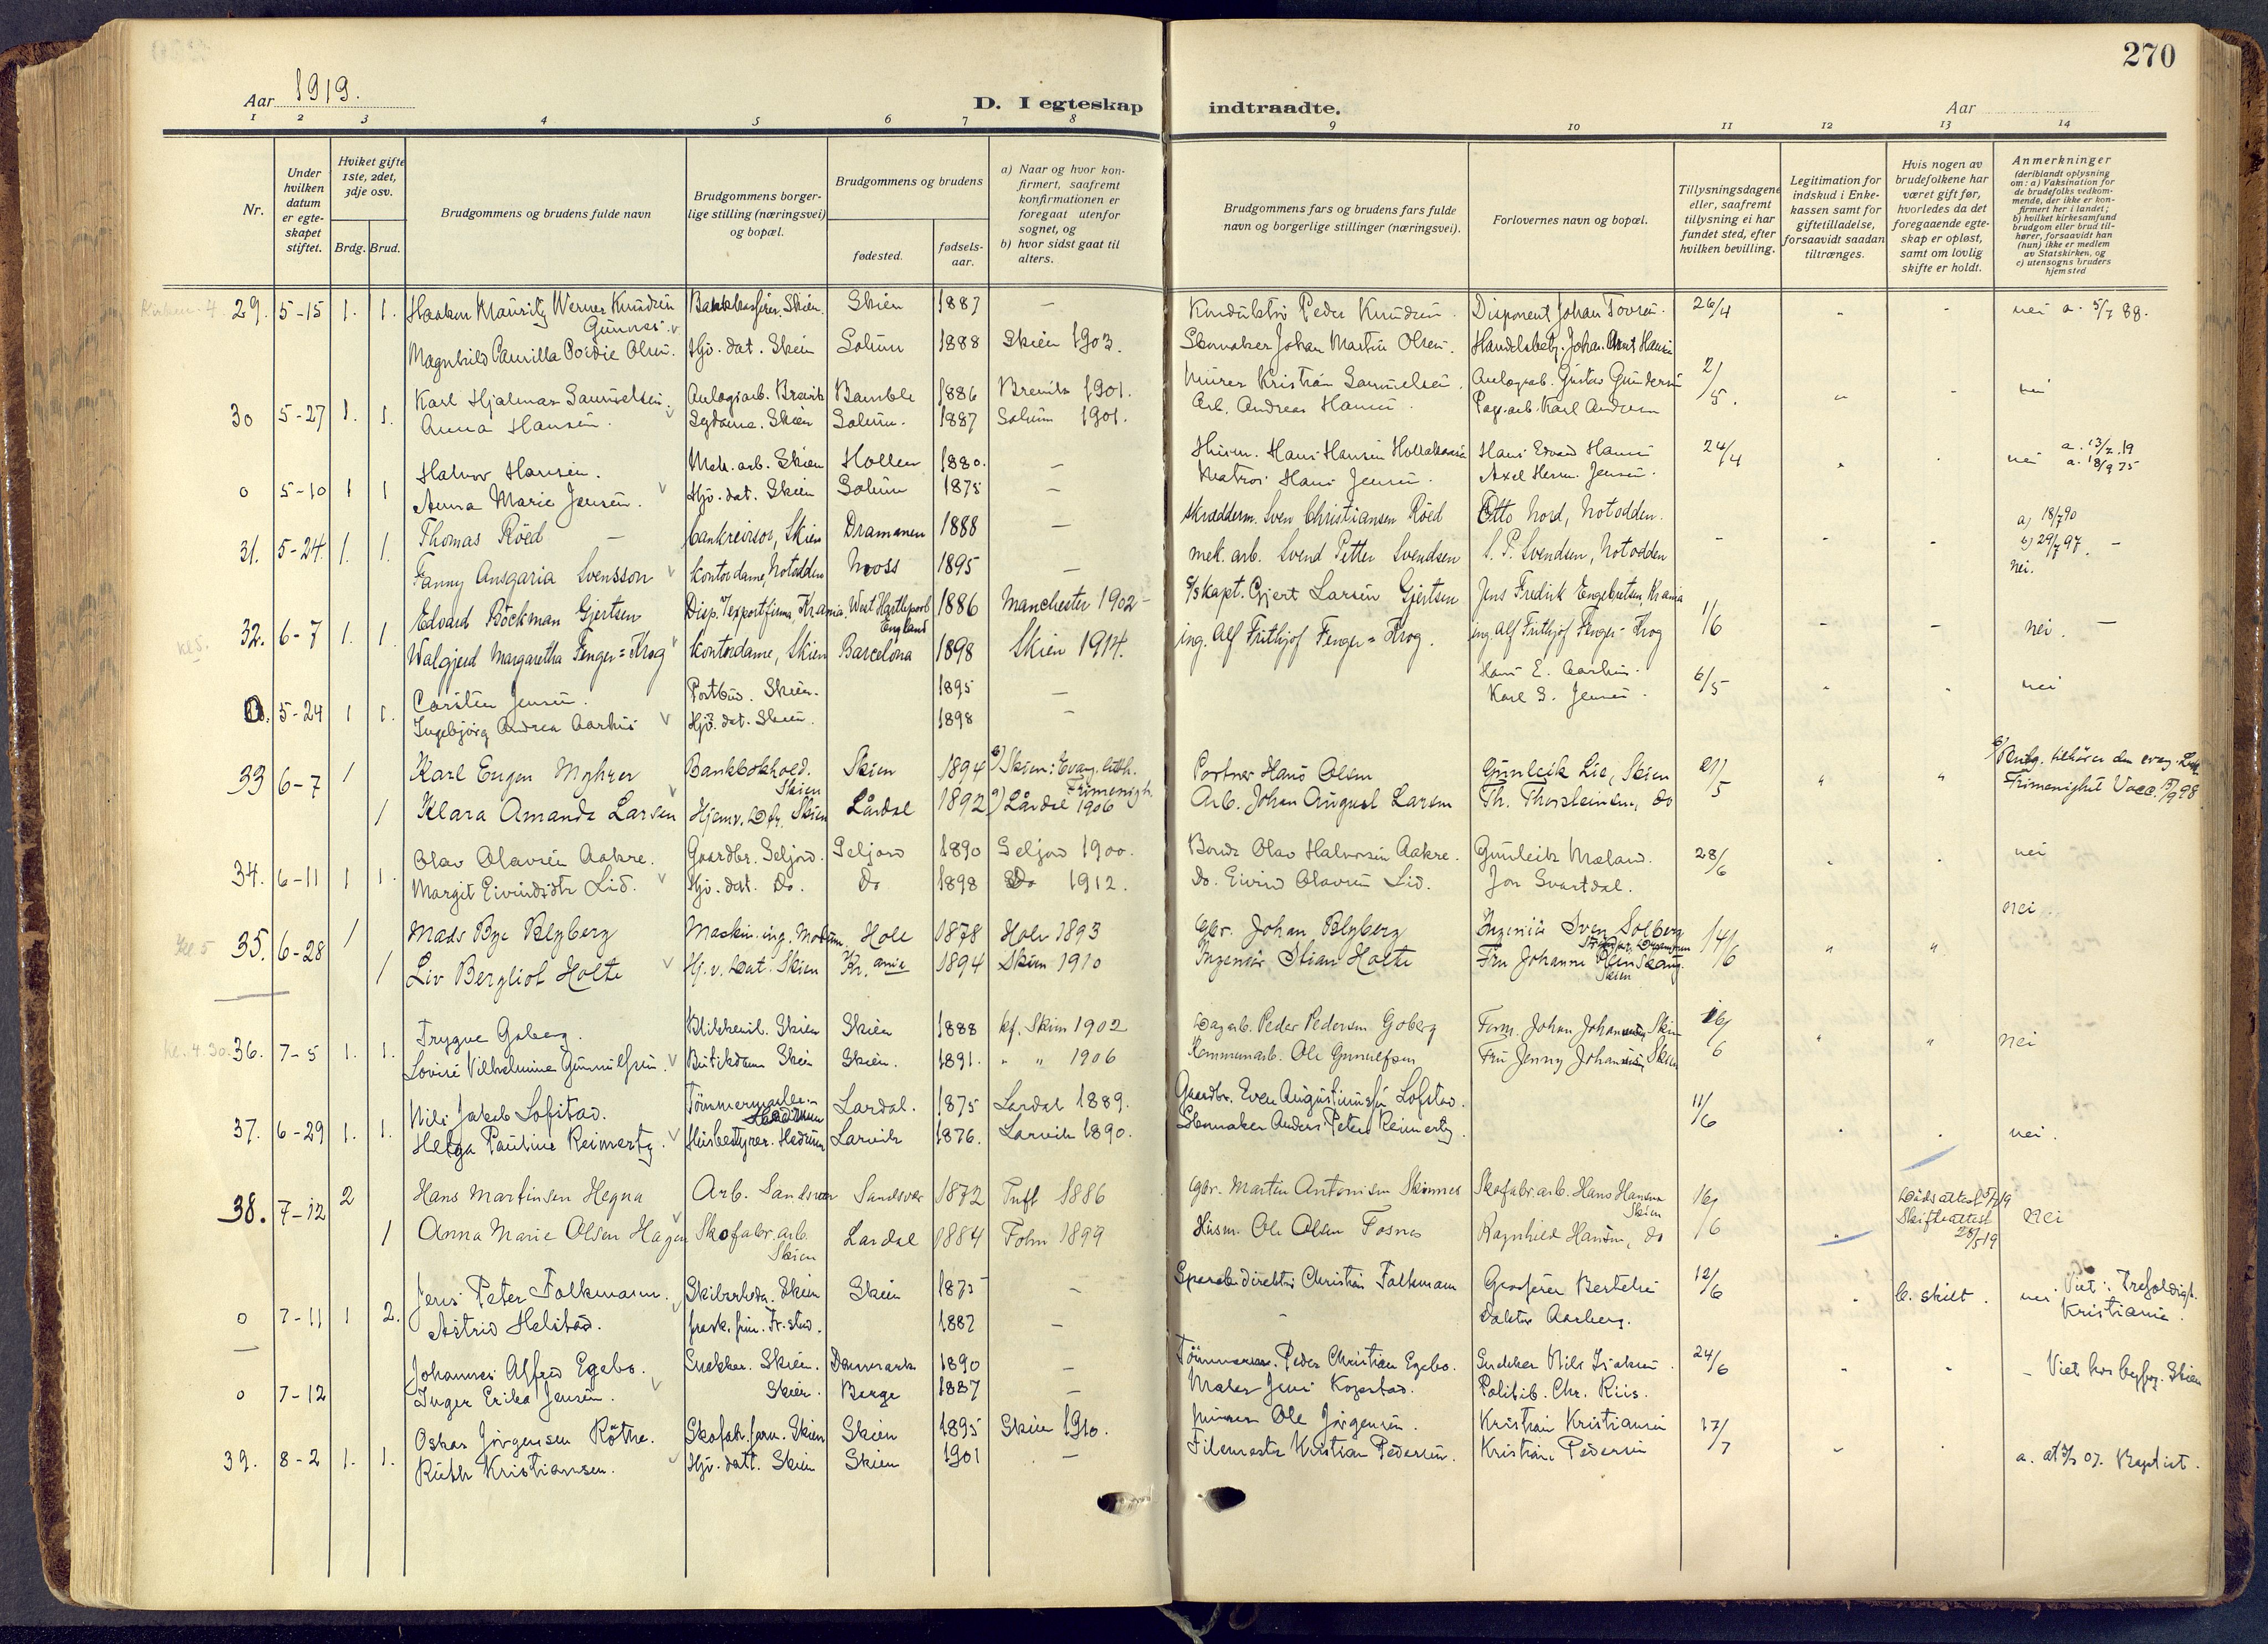 270
Aar 1919.
D. I egteskap indtraadte.
Aar
1 2 3 4 5 6 7 8 9 10 11 12 13 14
Nr.
Under hvilken datum er egteskapet stiftet.
Hviket gifte 1ste, 2det, 3dje osv.
Brdg. Brud.
Brudgommens og brudens fulde navn
Brudgommens borgerlige stilling (næringsvei) og bopæl.
Brudgommens og brudens
fødested.
fødselsaar.
a) Naar og hvor konfirmert, saafremt konfirmationen er foregaat utenfor sognet, og
b) hvor sidst gaat til alters.
Brudgommens fars og brudens fars fulde navn og borgerlige stillinger (næringsvei).
Forlovernes navn og bopæl.
Tillysningsdagene eller, saafremt tillysning ei har fundet sted, efter hvilken bevilling.
Legitimation for indskud i Enkekassen samt for giftetilladelse, forsaavidt saadan tiltrænges.
Hvis nogen av brudefolkene har været gift før, hvorledes da det foregaaende egteskap er opløst, samt om lovlig skifte er holdt.
Anmerkninger (deriblandt oplysning om: a) Vaksination for de brudefolks vedkommende, der ikke er konfirmert her i landet; b) hvilket kirkesamfund brudgom eller brud tilhører, forsaavidt han (hun) ikke er medlem av Statskirken, og c) utensogns bruders hjemsted
29. 5-15 1. 1. Haakon Mauritz Werner Knudsen Skien 1887 — Konduktør Peder Knudsen. Disponent Johan 26/4 nei a. 5/7 88.
Gunnes.
Magnhild Olsen. Hjv. dat. Skien Solum 1888 Skien 1903. Skomaker Johan Martin Olsen. Handelsbetj. Johan Hansen
Karl Hjalmar Samuelsen. Anlægsarb. Brevik Bamble 1886 Brevik 1901. Murer Kristian Samuelsen. Anlægsarb. Gustav Gundersen 2/5. nei
30 5-27 1. 1. Anna Hansen. Sydame. Skien Solum. 1887 Solum 1901. Arb. Andreas Hansen. Pap.arb. Karl Andersen
Halvor Hansen. Mek. arb. Skien Hollen 1880. — Husm. Hans Hansen Hans Edvard Hansen 24/4 nei a. 13/2.19
0 5-10 1 1 Anna Marie Jensen. Hjv. dat. Skien Solum 1875 — Matros Hans Jensen. Axel Herm. Jensen. a. 18/9 75
Thomas Röed — bankrevisor, Skien Drammen 1888 — skrædderm. Sven Christiansen Röed Otto Nord, Notodden. a) 18/7 90
31. 5-24. 1. 1. Fanny Ansgaria Svensson kontordame, Notodden Moss 1895 — mek. arb. Svend Petter Svendsen S. P. Svendsen, Notodden b) 29/7 97. — nei.
Edvard Böckman Gjertsen Disp. v/exportfirma, Kr.ania. West Hartlepool England 1886 Manchester 1902 — s/skapt. Gjert Larsen Gjertsen Jens Fredrik Engebretsen, Kr.ania 1/6
kl 5. 32. 6-7 1. 1. Walgjerd Margaretha Fenger=Krog kontordame, Skien Barcelona 1898 Skien 1914. ing. Alf Frithjof Fenger=Krog. ing. Alf Frithjof Fenger=Krog nei. —
Carsten Jensen. Postbud. Skien. 1895 — Hans E. Aarhus. 6/5 nei
0. 5-24 1 1. Ingebjörg Andrea Aarhus Hjv. dat. Skien. 1898 — Karl S. Jensen.
33 6-7 1 Karl Eugen Myhrer Bankbokhold. Skien Skien 1894 b) Skien: Evang. luth. Frimenigh. Portner Hans Olsen Gunleik Lie, Skien 21/5 b) Brdg. tilhører den evang. Luth. Frimenighet
1 Klara Amanda Larsen Hjemv. Dtr. Skien Lårdal 1892 a) Lårdal 1906 Arb. Johan August Larsen Th. Thorsteinsen, do
Olav Olavsen Aakre. Gaardbr. Seljord. Seljord 1890 Seljord 1900. Bonde Olav Halvorsen Aakre. Gunleik Mæland. 28/6 nei
34. 6-11 1 1. Margit Eivindsdtr Lid. Hjv. dat. Do. Do 1898 Do 1912. Do. Eivind Olavsen Lid. Jon Svartdal.
kl 5 35. 6-28 1 Mads Bye Blyberg Maskin. ing. Modum. Hole 1878 Hole 1893 Gbr. Johan Blyberg Ingeniør Sven Solberg 14/6 nei
1 Liv Bergliot Holte Hj.v. Dat. Skien Kr.ania 1894 Skien 1910 Ingeniør Stian Holte Fru Johanne Skien
Trygve Goberg. Skien Skien 1888 kf. Skien 1902 Dagarb. Peder Pedersen Goberg Form. Johan Johansen, Skien 16/6
kl. 4.30. 36. 7-5 1. 1. Lovise Vilhelmine Gunnulfsen. Butikdame Skien Skien. 1891. " " 1906 Kommunarb. Ole Gunnulfsen Fru Jenny Johansen, Skien nei
Nils Jakob Lofstad. Tömmermester. Lardal. 1875 Lardal 1889. Gaardbr. Even Augustinussen Lofstad. 11/6
37. 6-29 1. 1. Helga Pauline Reimertz. Husbestyrer. Hedrum Larvik 1876. Larvik 1890. Skomaker Anders Peter Reimertz. nei.
38. 7-12 2 Hans Martinsen Hegna Arb. Sandsvær Sandsvær 1872 Tuft 1886 Gbr. Martin Antonisen Skinnes Skofabr.arb. Hans Hansen Skien 16/6 Dødsattest 5/7 19
1 Anna Marie Olsen Hagen Skofabr.arb. Skien Lardal 1884 Folm 1899 Husm. Ole Olsen Fosnes Ragnhild Hansen, do Skifteattest 28/5 19 nei
Jens Peter Folkmann. Skien Skien 1875 — Christian Folkmann Bertelsen 12/6 b. skilt. nei Viet: Trefoldigh. Kristiania.
0 7-11 1 2. Astrid Helstad. 1882 — Doktor Aarberg.
Johannes Alfred Egebo. Snekker. Skien. Danmark 1890 — Peder Christian Egebo. Snekker Nils Isaksen. 24/6
0 7-12 Inger Erika Jensen. Skien. Berge 1887 — Maler Jens Kopstad. Politib. Chr. Riis. Viet hos byfog. Skien
Oskar Jørgensen Röthe. Skofab. form. Skien Skien 1895 Skien 1910. Ole Jørgensen. Kristian Kristiansen 17/7
39. 8-2 1. 1. Ruth Kristiansen. Hjv. datt. Skien Skien 1901 — Kristian Pedersen. Kristian Pedersen Baptist.